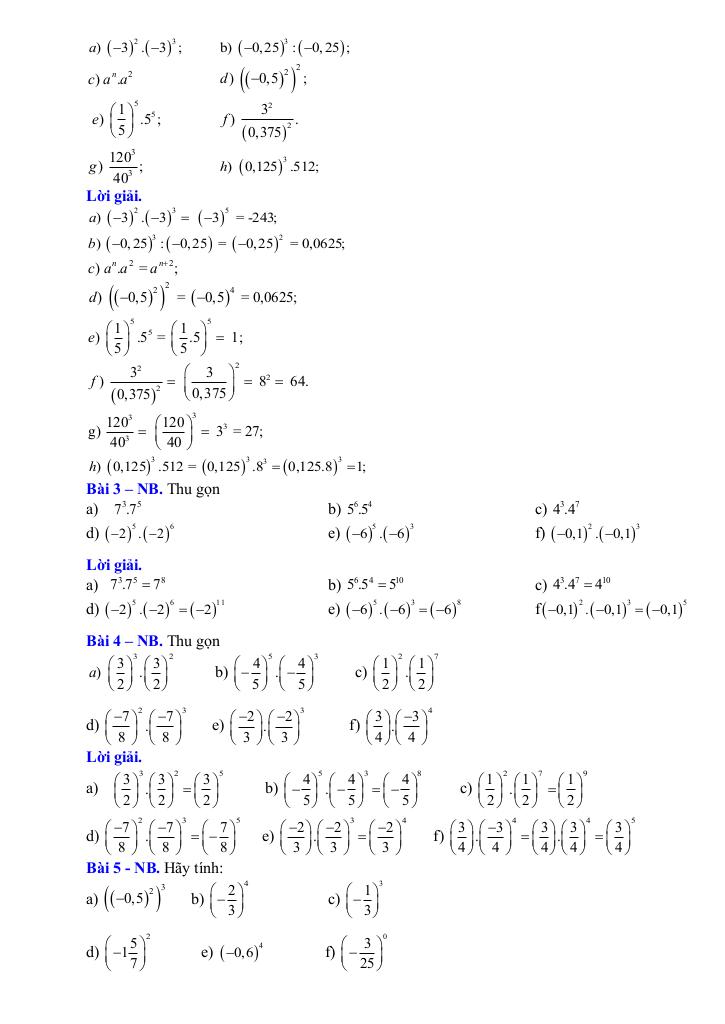 a) (−3)².(−3)³; b) (−0,25)³ : (−0,25);
c) aⁿ.a² d) ((−0,5)²)²;
e) (1/5)⁵.5⁵; f) 3²/(0,375)².
g) 120³/40³; h) (0,125)³.512;
Lời giải.
a) (−3)².(−3)³ = (−3)⁵ = -243;
b) (−0,25)³ : (−0,25) = (−0,25)² = 0,0625;
c) aⁿ.a² = aⁿ⁺²;
d) ((−0,5)²)² = (−0,5)⁴ = 0,0625;
e) (1/5)⁵.5⁵ = (1/5.5)⁵ = 1;
f) 3²/(0,375)² = (3/0,375)² = 8² = 64.
g) 120³/40³ = (120/40)³ = 3³ = 27;
h) (0,125)³.512 = (0,125)³.8³ = (0,125.8)³ = 1;
Bài 3 – NB. Thu gọn
a) 7³.7⁵ b) 5⁶.5⁴ c) 4³.4⁷
d) (−2)⁵.(−2)⁶ e) (−6)⁵.(−6)³ f) (−0,1)².(−0,1)³
Lời giải.
a) 7³.7⁵ = 7⁸ b) 5⁶.5⁴ = 5¹⁰ c) 4³.4⁷ = 4¹⁰
d) (−2)⁵.(−2)⁶ = (−2)¹¹ e) (−6)⁵.(−6)³ = (−6)⁸ f(−0,1)².(−0,1)³ = (−0,1)⁵
Bài 4 – NB. Thu gọn
a) (3/2)³.(3/2)² b) (−4/5)⁵.(−4/5)³ c) (1/2)².(1/2)⁷
d) (−7/8)².(−7/8)³ e) (−2/3).(−2/3)³ f) (3/4).(−3/4)⁴
Lời giải.
a) (3/2)³.(3/2)² = (3/2)⁵ b) (−4/5)⁵.(−4/5)³ = (−4/5)⁸ c) (1/2)².(1/2)⁷ = (1/2)⁹
d) (−7/8)².(−7/8)³ = (−7/8)⁵ e) (−2/3).(−2/3)³ = (−2/3)⁴ f) (3/4).(−3/4)⁴ = (3/4).(3/4)⁴ = (3/4)⁵
Bài 5 - NB. Hãy tính:
a) ((−0,5)²)³ b) (−2/3)⁴ c) (−1/3)³
d) (−1 5/7)² e) (−0,6)⁴ f) (−3/25)⁰